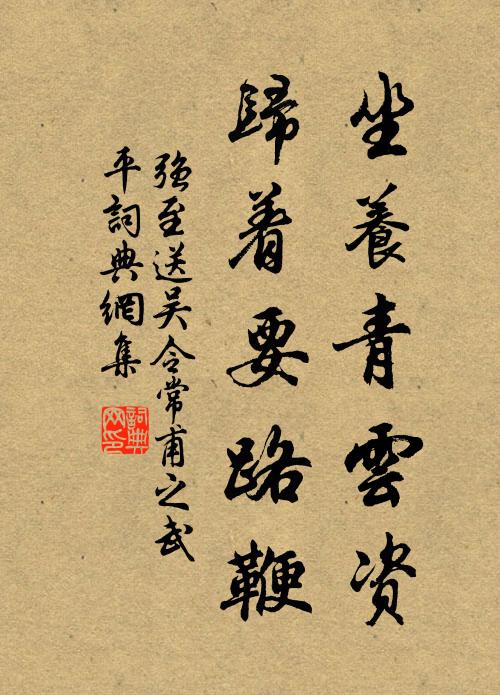 坐養青雲資
歸着要路鞭
強至送吳令常甫之武
平詞典網集
詞典网印